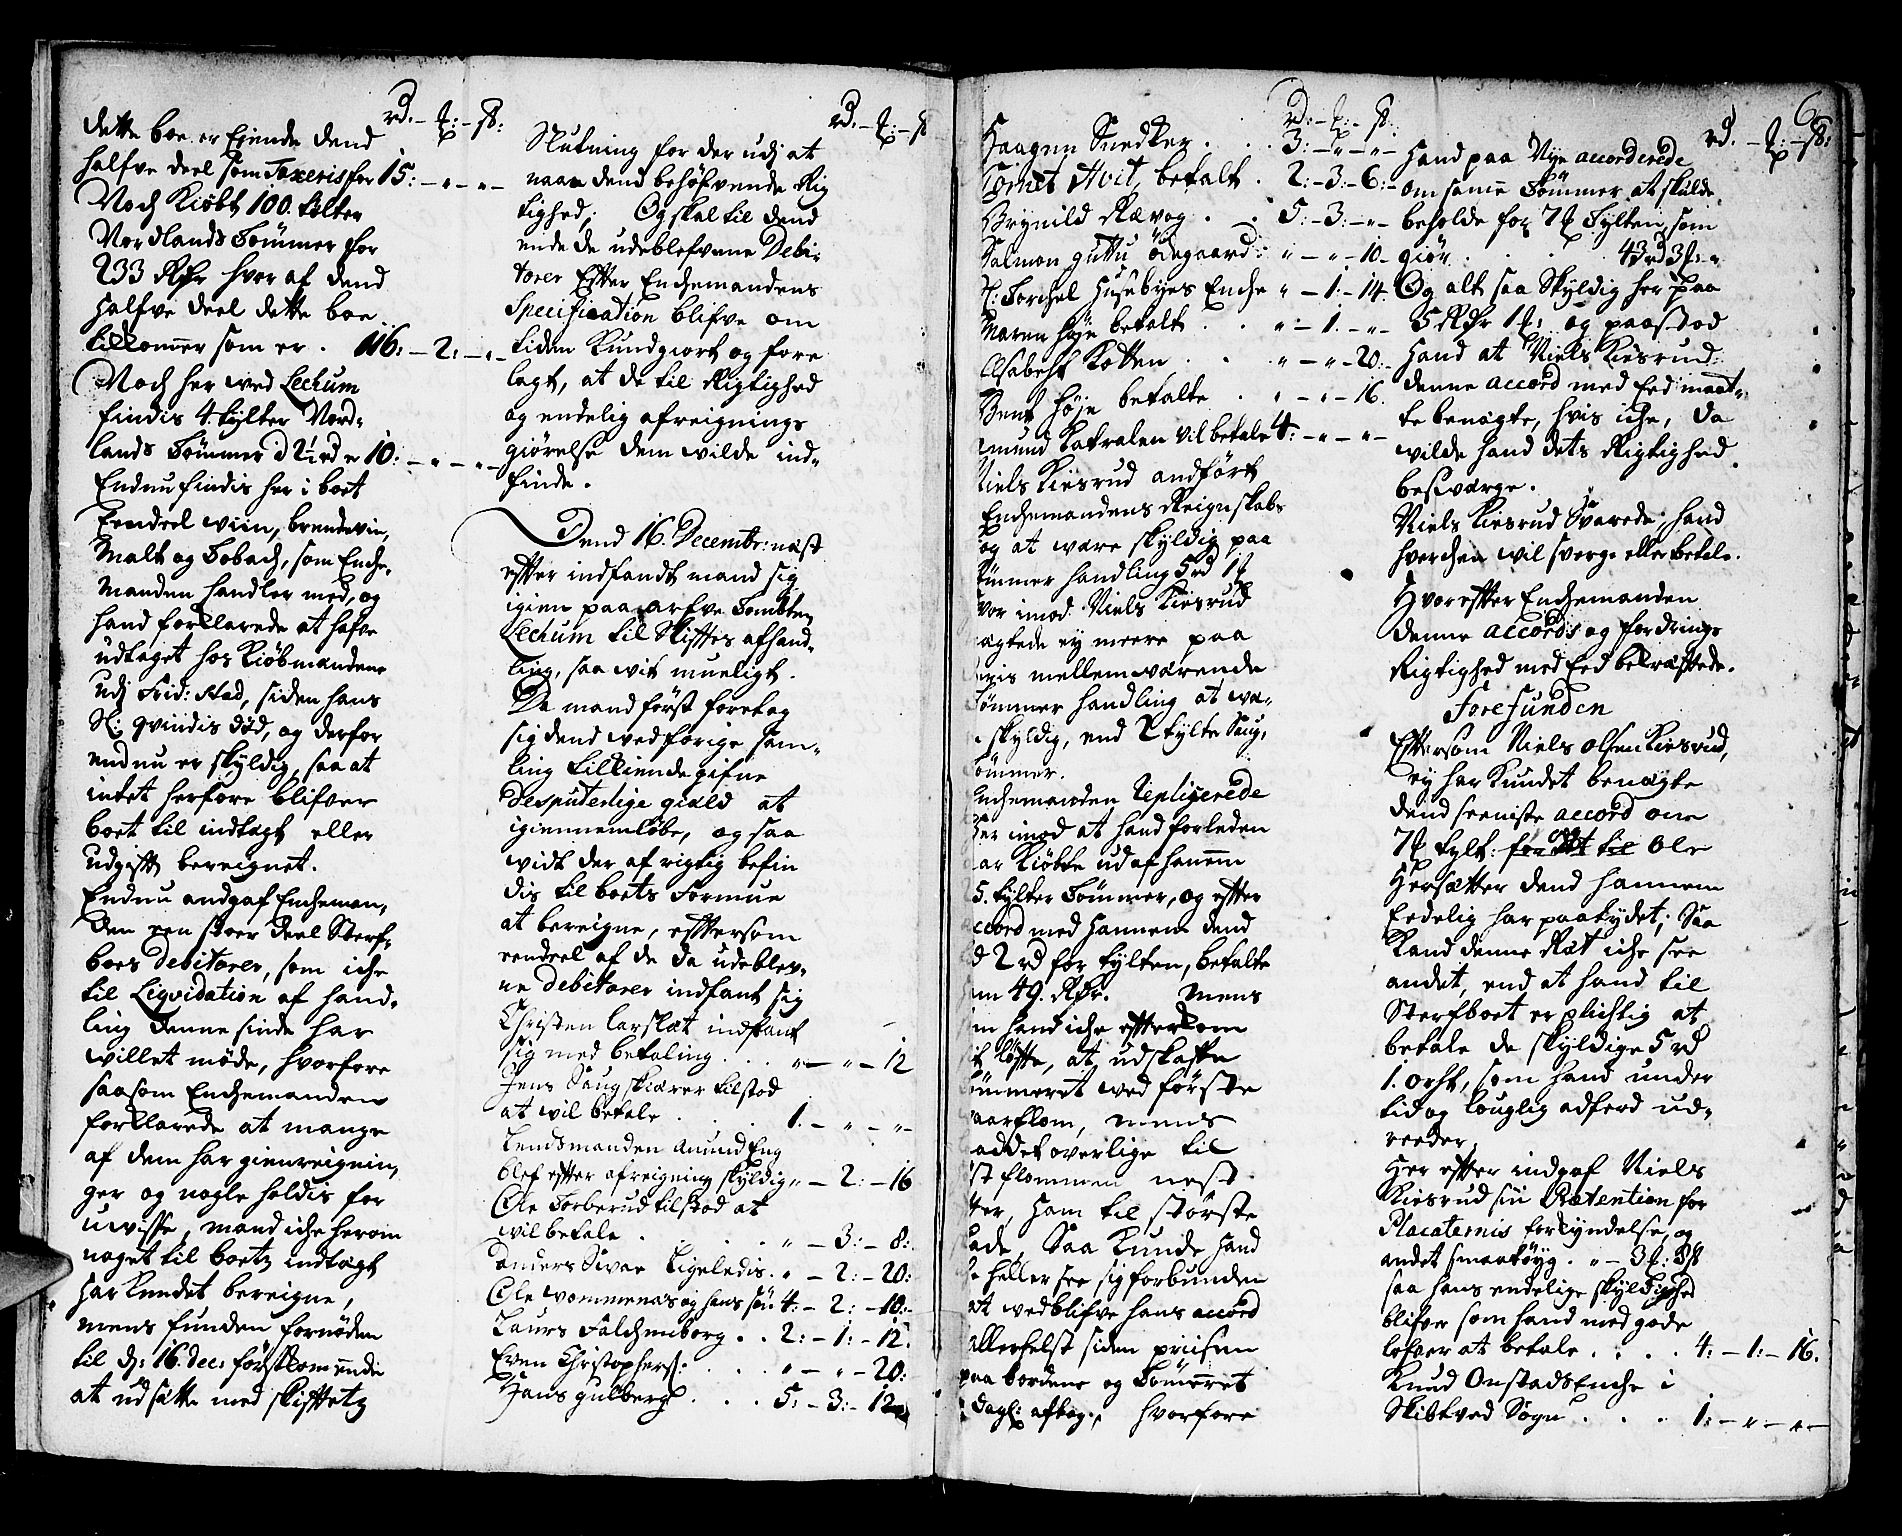 rd. - ƒ: - ß:
dette boe er Eiende dend
halfve deel som Taxeris for 15: - „ - „ -
Noch Kiöbt 100. tölter
Nordlands Tømmer for
233 Rdr hvor af dend
halfve deel dette boe
tilkomer som er . 116: - 2: - „ -
Noch her wed Lechum
findis 4 tylter Nord-
lands Tømmer à 2½ rd er 10: - „ - „ -
Endnu findis her i boet
Eendeel wiin, brendeviin,
Malt og Tobach, som Enche-
manden handler med, og
hand forklarede at hafve
udtaget hos Kiöbmandene
udj Frid: stad, siden hans
Sl: qvindis död, og derfor
endnu er skyldig, saa at
intet herfore blifver
boet til indtægt eller
udgifft bereignet.
Endnu andgaf Encheman-
den een stoer deel Sterf-
boes debitorer, som iche
til Liqvidation af hand-
ling denne sinde har
willet möde, hvorfore
saasom Enchemanden
forklarede at mange
af dem har gienreignin-
ger og nogle holdis for
uwisse, mand iche herom
noget til boetz indtægt
har kundet bereigne,
mens funden fornöden
til d: 16. dec: förstkommendis
at udsætte med skifftetz
rd. - ƒ: - ß
Slutning for der udj at
naae dend behöfvende Rig
tighed; Og skal til dend
ende de udeblefvene Debi-
torer Efter Enchemandens
Specification blifve om
tiden Kundgiort og fore
lagt, at de til Rigtighed
og endelig afreignings
giörelse dem wilde ind-
finde.
Dend 16. Decembr: næst
effter indfandt mand sig
igien paa arfve Tombten
Lechum til Skifftes afhand-
ling, saa wit mueligt.
Da mand först foretog
sig dend wed forige sam-
ling tilkiendegifne
desputerlige giæld at
igiennemlöbe, og saa
widt der af rigtig befin
dis til boets Formue
at bereigne, efftersom
eendeel af de da udeblev-
ne debitorer indfant sig
Christen Larslæt indfant
sig med betaling . . . „ - „ - 12
Jens Saugskiærer tilstod
at wil betale . . . 1. - „ - „ -
Lendsmanden Amund Eng
blef effter afreigning skyldig „ - 2: - 16
Ole Torberud tilstod at
wil betale . . . „ - 3: - 8:
Anders Svae Ligeledis . „ - 2: - 20:
Ole Wommenæs og hans sön 4: - 2: - 10:-
Laurs Falchenborg . . 2: - 1: - 12:
Even Christophers: . . „ - „ - 20:
Hans gulberg . . . 5: - 3: - 12
rd: - ƒ: - ß.
Haagen Snedker . . . 3: - „ - „ -
Cornet Hvit, betalt . 2: - 3: - 6: -
Brynild Ræwog . . 5: - 3: - „ -
Salmon guttu Ödegaard: „ - „ - 10. -
Torchel Husebyes Enche „ - 1: - 14.
Maren Höje betalt . . „ - 1. - „ -
Elsabeht Kotten . . . „ - „ - 20. -
Bent Höje betalte . „ - „ - 16.
mund Katralen vil betale 4: - „ - „ -
Niels Kiesrud andfört
Enchemandens Reignskabs
og at være skyldig paa
tömmer handling 5 rd 1 ƒ
vor imod Niels Kiesrud
ægtede ey meere paa
deris mellemværende
Tömmer handling at wæ-
skyldig, end 2 tylter Saug,
tömmer.
Enchemanden Repligerede
her imod at hand forleden
aar Kiöbte ud af hannem
5. tylter Tömmer, og effter
accord med hannem dend
2 rd for tylten, betalte
49. Rdr. Mens
hand iche efterkom
löffte, at udskaffe
tömmeret wed förste
aarflom, mens
addet overlige til
st flommen nest
ter, ham til störste
ade, Saa Kunde hand
heller see sig forbunden
at wedblifve hans accord
allerhelst siden priisen
paa bordene og Tömmeret
Dagl: aftog, hvorfore
6
rd. - ƒ: - ß:
hand paa Nye accorderede
om same Tömmer at skulde
beholde for 7 ƒ Tylten, som
giör . . . 43 rd 3 ƒ: „
Og altsaa skyldig her paa
5 Rdr 1 ƒ: og paastod
hand at Niels Kiesrud
denne accord med Eed maat-
te benægte, hvis iche, da
wilde hand dets Rigtighed
besværge.
Niels Kiesrud Svarede, hand
hverchen wil sverge eller betale.
Hvorefter Enchemanden
denne accords og fordrings
Rigtighed med Eed bekræftede.
Foresunden
Eftersom Niels Olsen Kiesrud,
ey har Kundet benægte
dend seeniste accord om
7 ƒ tylt: Ole
Hersætter dend hannem
Eedelig har paatydet; Saa
Kand denne Ræt iche see
andet, end at hand til
Sterfboet er plichtig at
betale de skyldige 5 rd
1. orht, som hand under
tid og louglig adferd ud-
reeder.
Her effter indgaf Niels
Kiesrud sin Prætention for
Placaternis forkyndelse, og
andet smaatöyg . „ - 3 ƒ: 8 ß
saa hans endelige skyldighed
blifver som hand med gode
lofver at betale . . . . 4: - 1: - 16.
Knud OnstadsEnche i
Skibtved Sogn . . . . 1: - „ - „ -